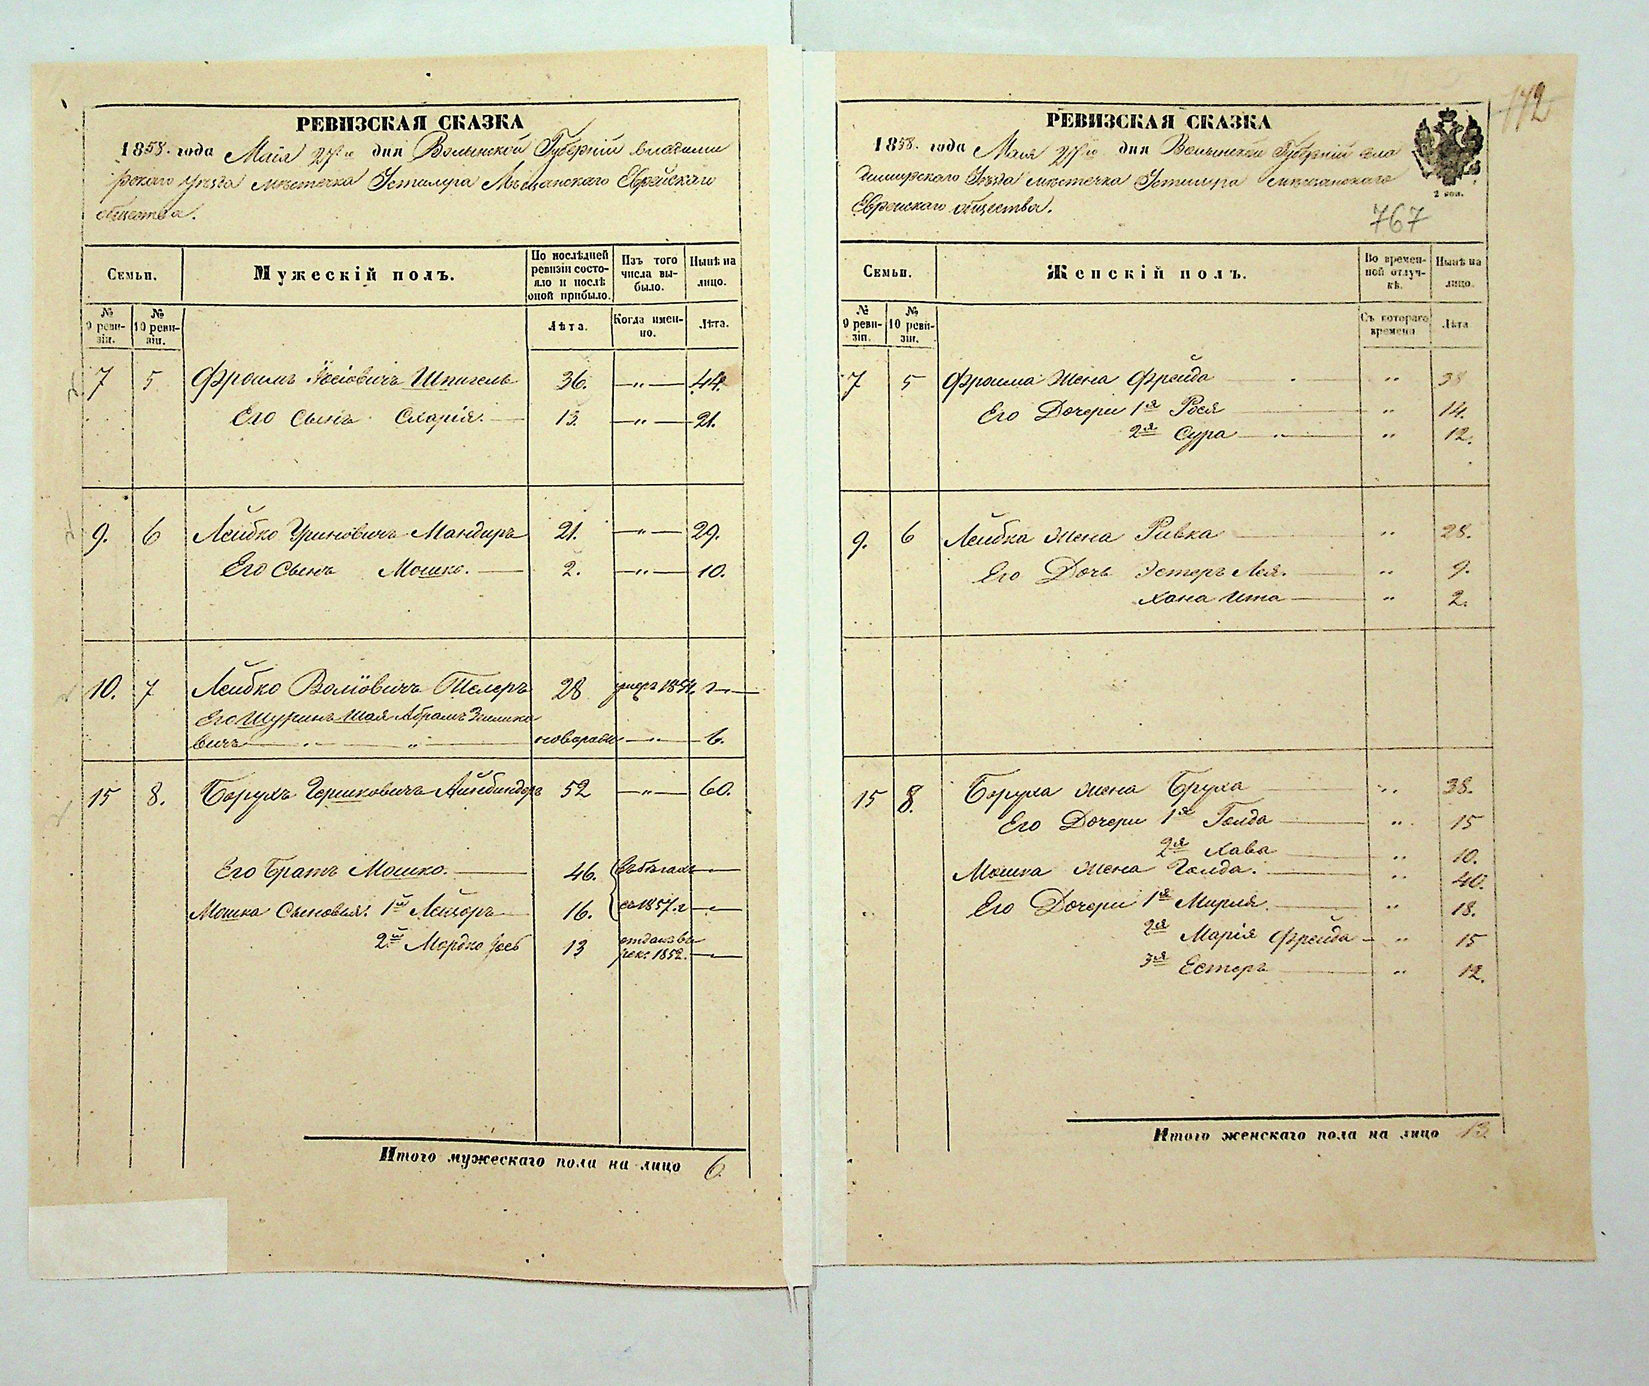 РЕВИЗСКАЯ СКАЗКА
1858. года Маія 27го дня Волынской Губерніи Владими
рскаго уѣзда мѣстечка Устилуга Мѣщанскаго Еврейскаго
общества.
Семьи.
Мужескій полъ.
По послѣдней ревизіи состояло и послѣ оной прибыло.
Изъ того числа выбыло.
Нынѣ на лицо.
№ 9 ревизіи.
№ 10 ревизіи.
Лѣта.
Когда именно.
Лѣта.
7 5 Фроимъ Іосіовичъ Шпигель 36. — " — 44.
Его Сынъ Схарія. — 13. — " — 21.
9. 6 Лейбко Уриновичъ Мандиръ 21. — " — 29.
Его Сынъ Мошко. — 2. — " — 10.
10. 7 Лейбко Волiовичъ Телеръ 28 умеръ 1854. г —
Его Шуринъ Шая Абрамъ
вичъ — " — — " — 6.
15 8. Борухъ Гершковичъ Айнбиндеръ 52 — " — 60.
Его Братъ Мошко. — 46. въ бѣгахъ —
Мошка Сыновья: 1й 16. съ 1857. г —
2й Мордко Іосъ 13 отданъ въ
рек: 1852. —
Итого мужескаго пола на лицо 6.
РЕВИЗСКАЯ СКАЗКА
1858. года Маія 27го дня Волынской Губерніи Вла
димирскаго Уѣзда мѣстечка Устилуга мѣщанскаго
Еврейскаго общества.
2 коп.
172
767
Семьи.
Женскій полъ.
Во временной отлучкѣ.
Нынѣ на лицо.
№ 9 ревизіи.
№ 10 ревизіи.
Съ котораго времени
Лѣта
7 5 Фроима жена Фрейда — " 38
Его Дочери 1я Рося — " 14.
2я Сура — " 12.
9. 6 Лейбка жена Ривка — " 28.
Его Дочь Эстеръ Лея. — " 9.
Хана Ита — " 2.
15 8. Боруха жена Бруха — " 38.
Его Дочери 1я Голда — " 15
2я Хава — " 10.
Мошка жена Голда. — " 40.
Его Дочери 1я Мирля — " 18.
2я Марія Фрейда — " 15
3я Естеръ — " 12.
Итого женскаго пола на лицо 13